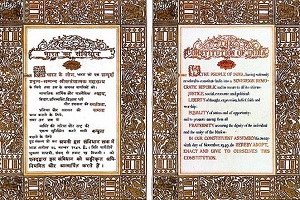 भारत का संविधान
हम भारत के लोग, भारत को एक सम्पूर्ण
प्रभुत्व-सम्पन्न लोकतन्त्रात्मक गणराज्य
बनाने के लिए, तथा उसके समस्त नागरिकों को:
सामाजिक, आर्थिक और राजनैतिक न्याय,
विचार, अभिव्यक्ति, विश्वास, धर्म
और उपासना की स्वतंत्रता,
प्रतिष्ठा और अवसर की समता
प्राप्त कराने के लिए,
तथा उन सब में
व्यक्ति की गरिमा और राष्ट्र की
एकता सुनिश्चित करने वाली बन्धुता
बढ़ाने के लिए
दृढ़संकल्प होकर अपनी इस संविधान सभा में
आज तारीख 26 नवम्बर 1949 ई०
को एतद्द्वारा इस संविधान को अङ्गीकृत, अधि-
नियमित और आत्मार्पित करते हैं।
WE, THE PEOPLE OF INDIA, having solemnly
resolved to constitute India into a SOVEREIGN DEMO-
CRATIC REPUBLIC and to secure to all its citizens:
JUSTICE, social, economic and political;
LIBERTY of thought, expression, belief, faith and
worship;
EQUALITY of status and of opportunity;
and to promote among them all
FRATERNITY assuring the dignity of the individual
and the unity of the Nation;
IN OUR CONSTITUENT ASSEMBLY this twenty-
sixth day of November, 1949, do HEREBY ADOPT,
ENACT AND GIVE TO OURSELVES THIS
CONSTITUTION.